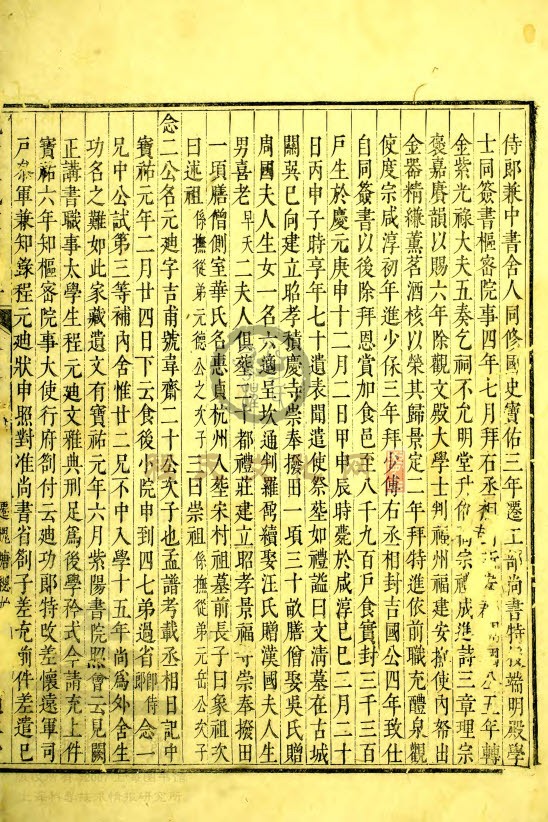 侍郎兼中書舍人同修國史寶佑三年遷工部尚書特授端明殿學
士同簽書樞密院事四年七月拜右丞相五年轉
金紫光祿大夫五奏乞祠不允明堂升宗禮成進詩三章理宗
褒嘉賡韻以賜六年除觀文殿大學士判福州福建安撫使內帑出
金器精縑薰茗酒核以榮其歸景定二年拜特進依前職充醴泉觀
使度宗咸淳初年進少保三年拜少傅右丞相封吉國公四年致仕
自同簽書以後除拜恩賞加食邑至八千九百戶食實封三千三百
戶生於慶元庚申十二月二日甲申辰時薨於咸淳己巳二月二十
日丙申子時享年七十遺表聞遣使祭塟如禮謚曰文清墓在古城
關巽巳向建立昭孝積慶寺崇奉撥田一項三十畝膳僧娶吳氏贈
周國夫人生女一名六適呈坎通判羅蒍續娶汪氏贈漢國夫人生
男喜老早夭二夫人俱塟二十都禮莊建立昭孝景福寺崇奉撥田
一項膳僧側室華氏名惠貞杭州人塟宋村祖墓前長子曰象祖次
曰述祖係撫從弟元德公之次子三曰崇祖係撫從弟元岳公次子
念二公名元廸字吉甫號韋齋二十公次子也孟譜考載丞相日記中
寶祐元年二月廿四日下云食後小院申到四七弟過省即侍郎念一
兄中公試第三等補內舍惟廿二兄不中入學十五年尚爲外舍生
功名之難如此家藏遺文有寶祐元年六月紫陽書院照會云見闕
正講書職事太學生程元廸文雅典刑足爲後學矜式今請充上件
寶祐六年知樞密院事大使行府劄付云廸功郎特改差懷遠軍司
戶叅軍兼知錄程元廸狀申照對准尚書省劄子差充前件差遣已